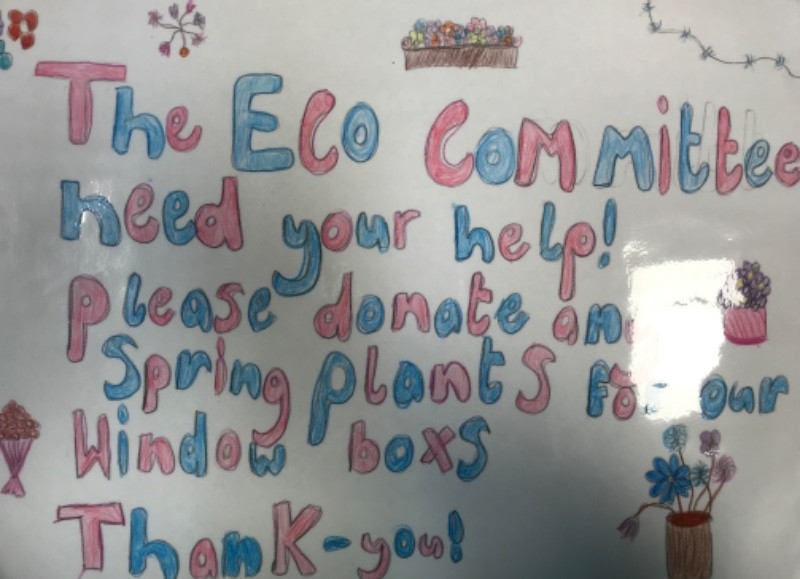 The Eco Committee
need your help!
please donate
Spring plants for our
Window boxs
Thank-you!